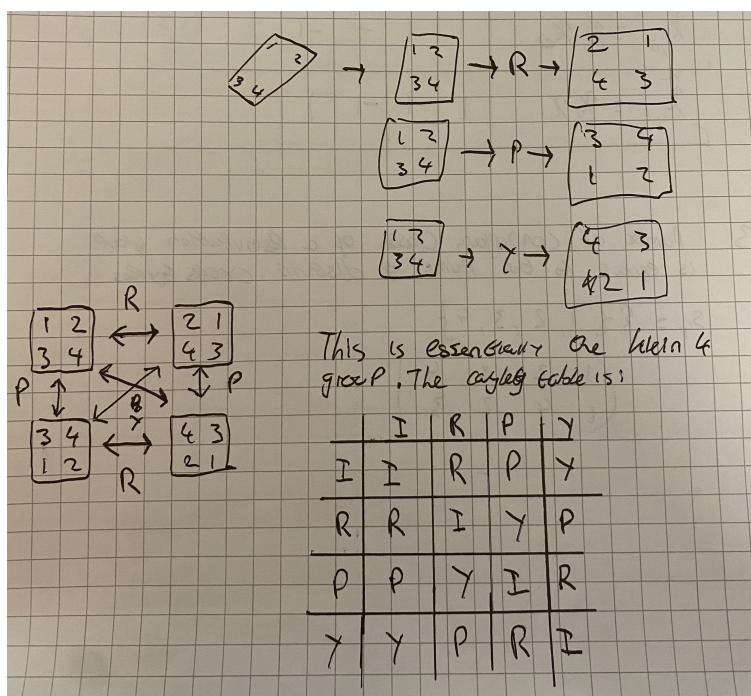 1 2
3 4
1 2
3 4
R
2 1
4 3
1 2
3 4
P
3 4
1 2
1 2
3 4
Y
4 3
2 1
R
1 2
3 4
2 1
4 3
P
P
Y
3 4
1 2
4 3
2 1
R
This is essentially the klein 4
group. The cayley table is:
I R P Y
I I R P Y
R R I Y P
P P Y I R
Y Y P R I